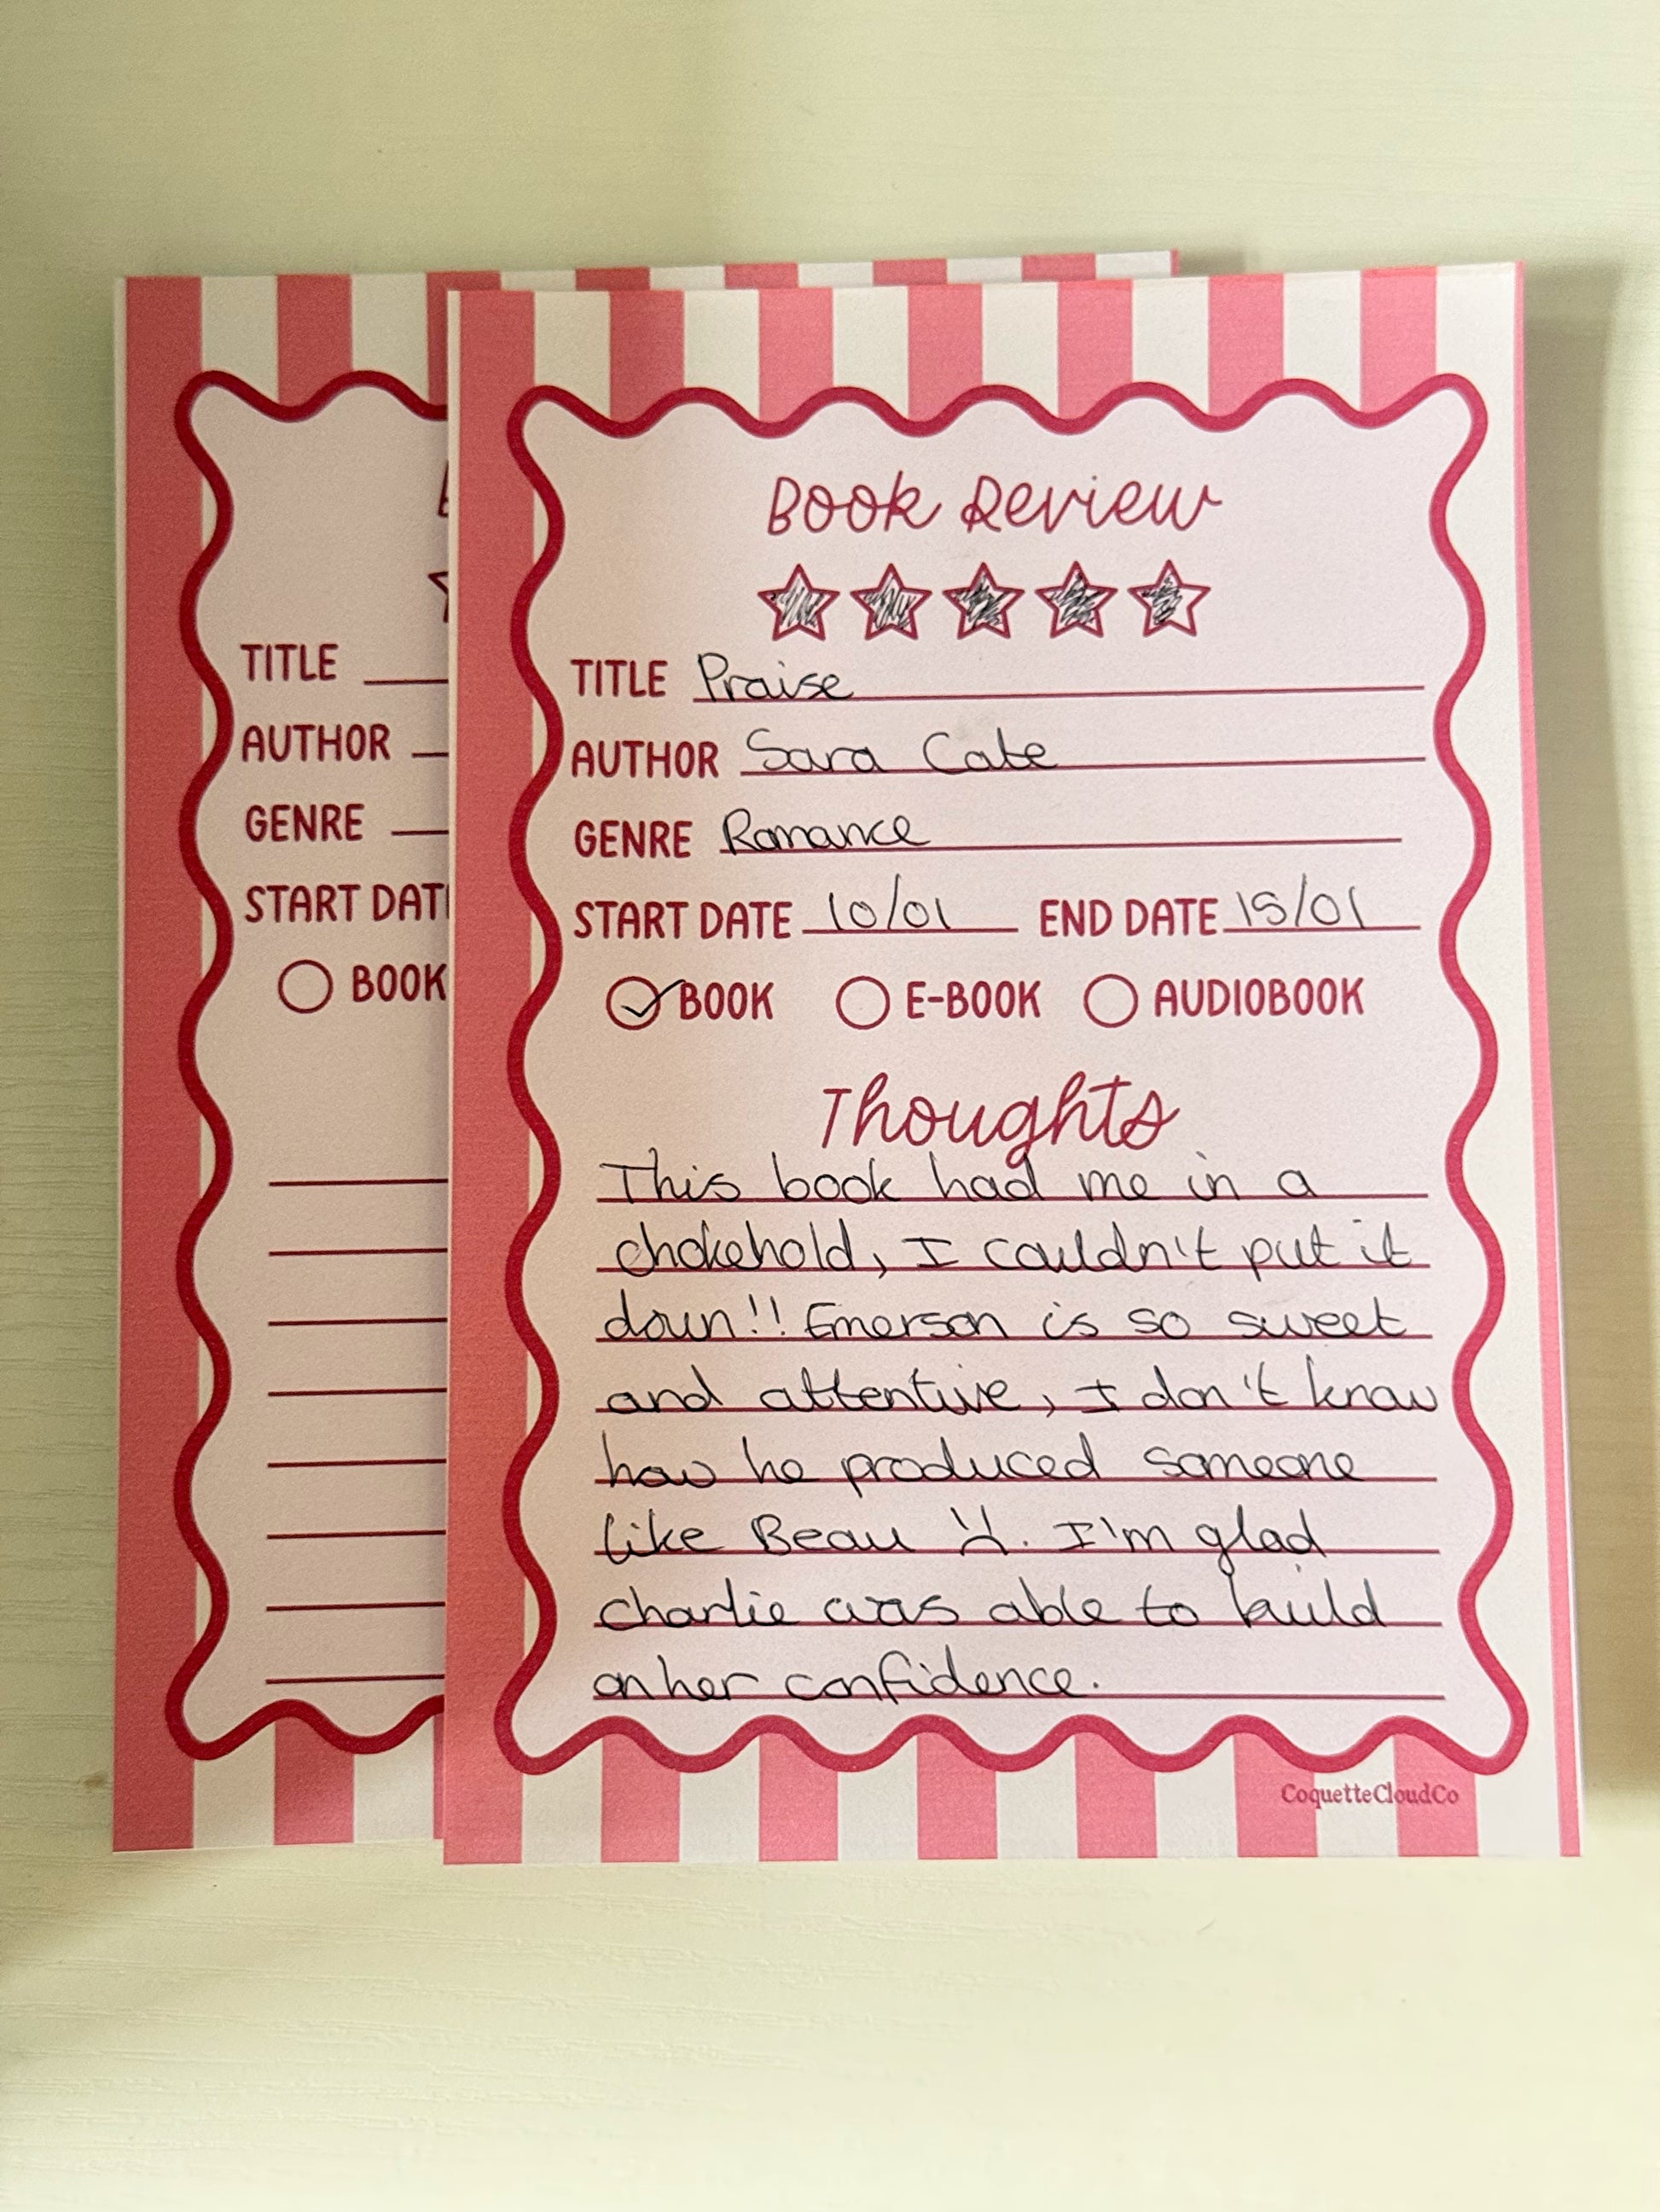 TITLE
AUTHOR
GENRE
START DATE
BOOK
Book Review
TITLE Praise
AUTHOR Sara Cate
GENRE Romance
START DATE 10/01 END DATE 15/01
BOOK E-BOOK AUDIOBOOK
Thoughts
This book had me in a
chokehold, I couldn't put it
down!! Emerson is so sweet
and attentive, I don't know
how he produced someone
like Beau :(. I'm glad
Charlie was able to build
on her confidence.
CoquetteCloudCo